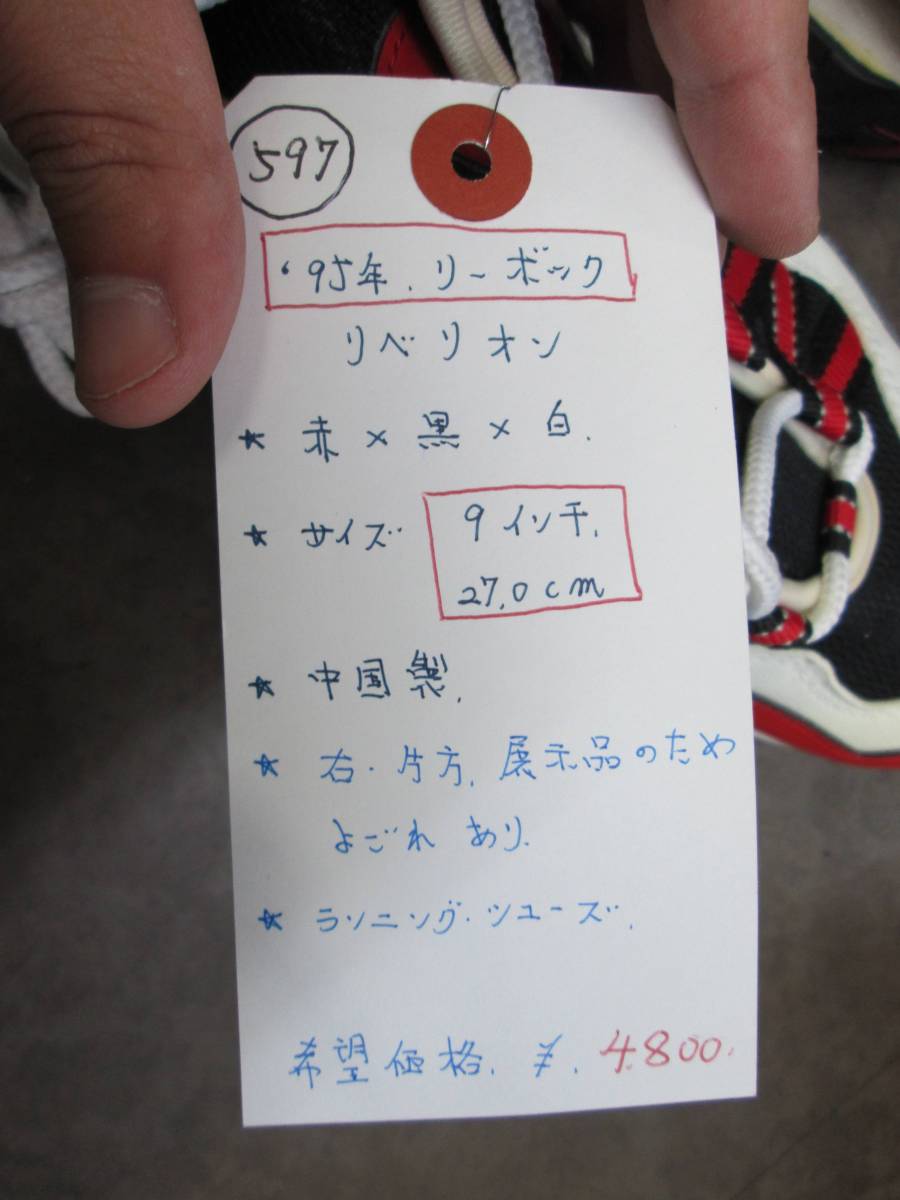 597
'95年.リーボック
リベリオン
★ 赤×黒×白.
★ サイズ 9インチ.
27.0cm
★ 中国製.
★ 右・片方.展示品のため
よごれ あり.
★ ランニング・シューズ.
希望価格.¥.4.800.